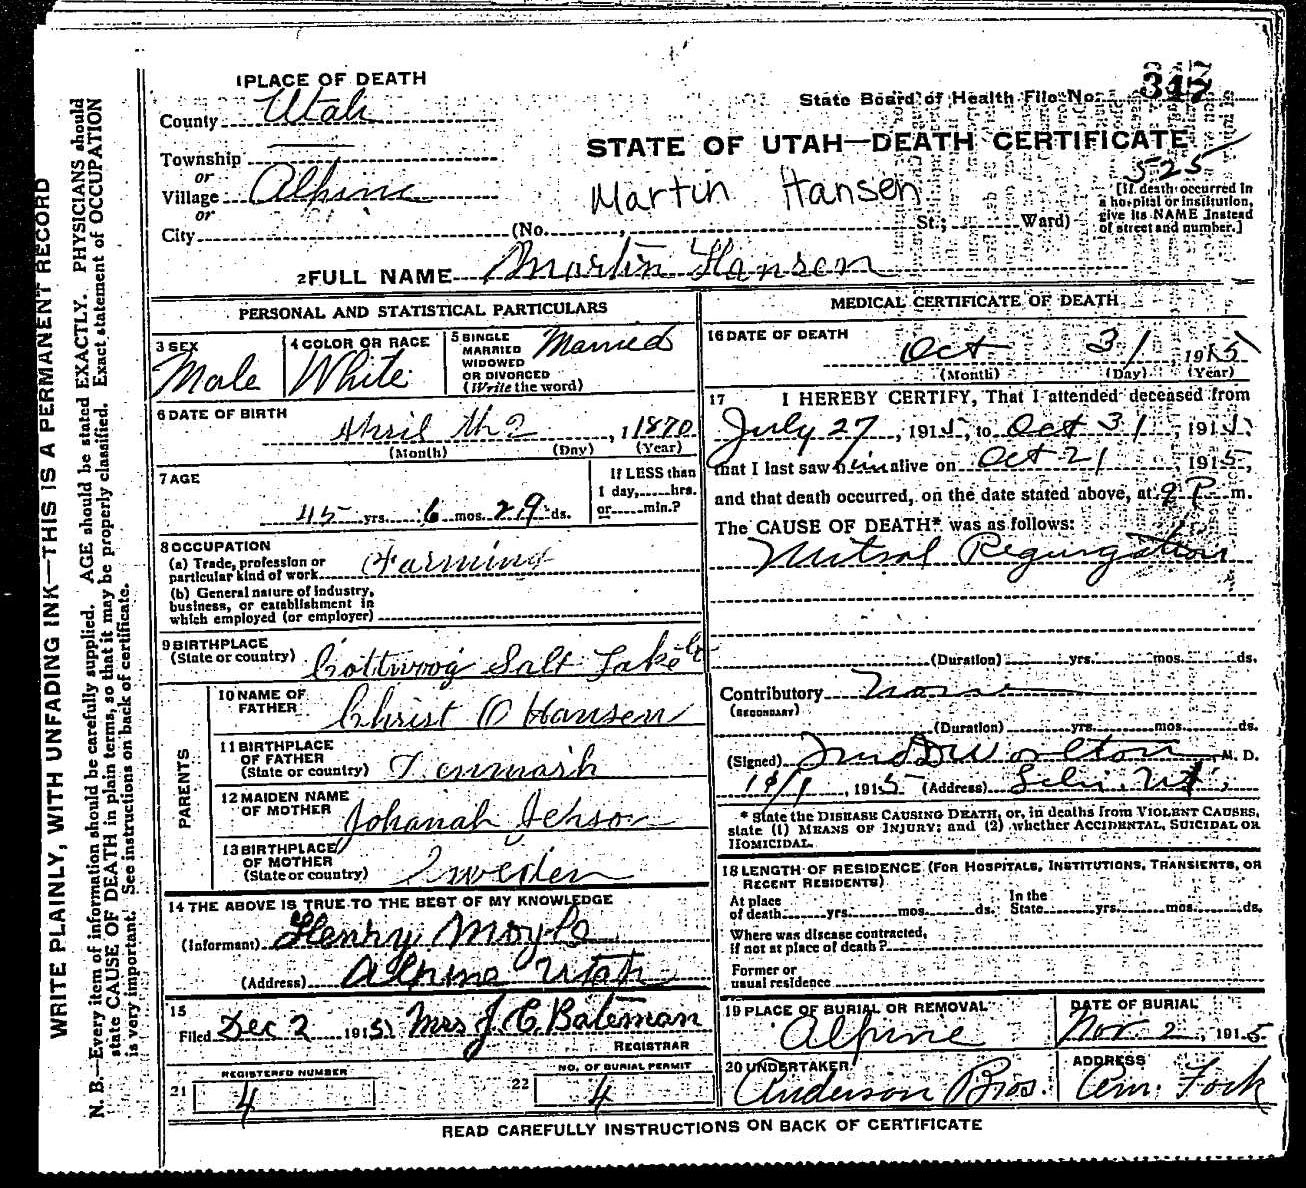 1 PLACE OF DEATH
County Utah
Township
or
Village Alpine
or
City (No. , St.; Ward)
State Board of Health File No. 347
STATE OF UTAH—DEATH CERTIFICATE
525
Martin Hansen
[If death occurred in
a hospital or institution,
give its NAME instead
of street and number.]
2 FULL NAME Martin Hansen
PERSONAL AND STATISTICAL PARTICULARS
3 SEX
Male
4 COLOR OR RACE
White
5 SINGLE
MARRIED
WIDOWED
OR DIVORCED
(Write the word)
Married
6 DATE OF BIRTH
April th 2 , 1 1870
(Month) (Day) (Year)
7 AGE
45 yrs. 6 mos. 29 ds.
If LESS than
1 day, hrs.
or min.?
8 OCCUPATION
(a) Trade, profession or
particular kind of work Farming
(b) General nature of industry,
business, or establishment in
which employed (or employer)
9 BIRTHPLACE
(State or country) Cottwoog Salt Lake
PARENTS
10 NAME OF
FATHER Christ O Hansen
11 BIRTHPLACE
OF FATHER
(State or country) Denmark
12 MAIDEN NAME
OF MOTHER Johanah
13 BIRTHPLACE
OF MOTHER
(State or country) Sweden
14 THE ABOVE IS TRUE TO THE BEST OF MY KNOWLEDGE
(Informant) Henry Moyle
(Address) Alpine Utah
15
Filed Dec 2 1915 Mrs J. C. Bateman
REGISTRAR
21 REGISTERED NUMBER
4
22 NO. OF BURIAL PERMIT
4
MEDICAL CERTIFICATE OF DEATH
16 DATE OF DEATH
Oct 31 1915
(Month) (Day) (Year)
17 I HEREBY CERTIFY, That I attended deceased from
July 27, 1915, to Oct 31, 1915,
that I last saw him alive on Oct 21 1915,
and that death occurred, on the date stated above, at 9 P m.
The CAUSE OF DEATH* was as follows:
Mitral Regurgitation
(Duration) yrs. mos. ds.
Contributory
(SECONDARY)
(Duration) yrs. mos. ds.
(Signed) M. D.
1915 (Address)
* State the DISEASE CAUSING DEATH, or, in deaths from VIOLENT CAUSES,
state (1) MEANS OF INJURY; and (2) whether ACCIDENTAL, SUICIDAL OR
HOMICIDAL.
18 LENGTH OF RESIDENCE (FOR HOSPITALS, INSTITUTIONS, TRANSIENTS, OR
RECENT RESIDENTS)
At place
of death yrs. mos. ds.
In the
State yrs. mos. ds.
Where was disease contracted,
if not at place of death?
Former or
usual residence
19 PLACE OF BURIAL OR REMOVAL
Alpine
DATE OF BURIAL
Nov 2, 1915
20 UNDERTAKER
Anderson Bros.
ADDRESS
Am. Fork
READ CAREFULLY INSTRUCTIONS ON BACK OF CERTIFICATE
WRITE PLAINLY, WITH UNFADING INK—THIS IS A PERMANENT RECORD
N. B.—Every item of information should be carefully supplied. AGE should be stated EXACTLY. PHYSICIANS should
state CAUSE OF DEATH in plain terms, so that it may be properly classified. Exact statement of OCCUPATION
is very important. See instructions on back of certificate.